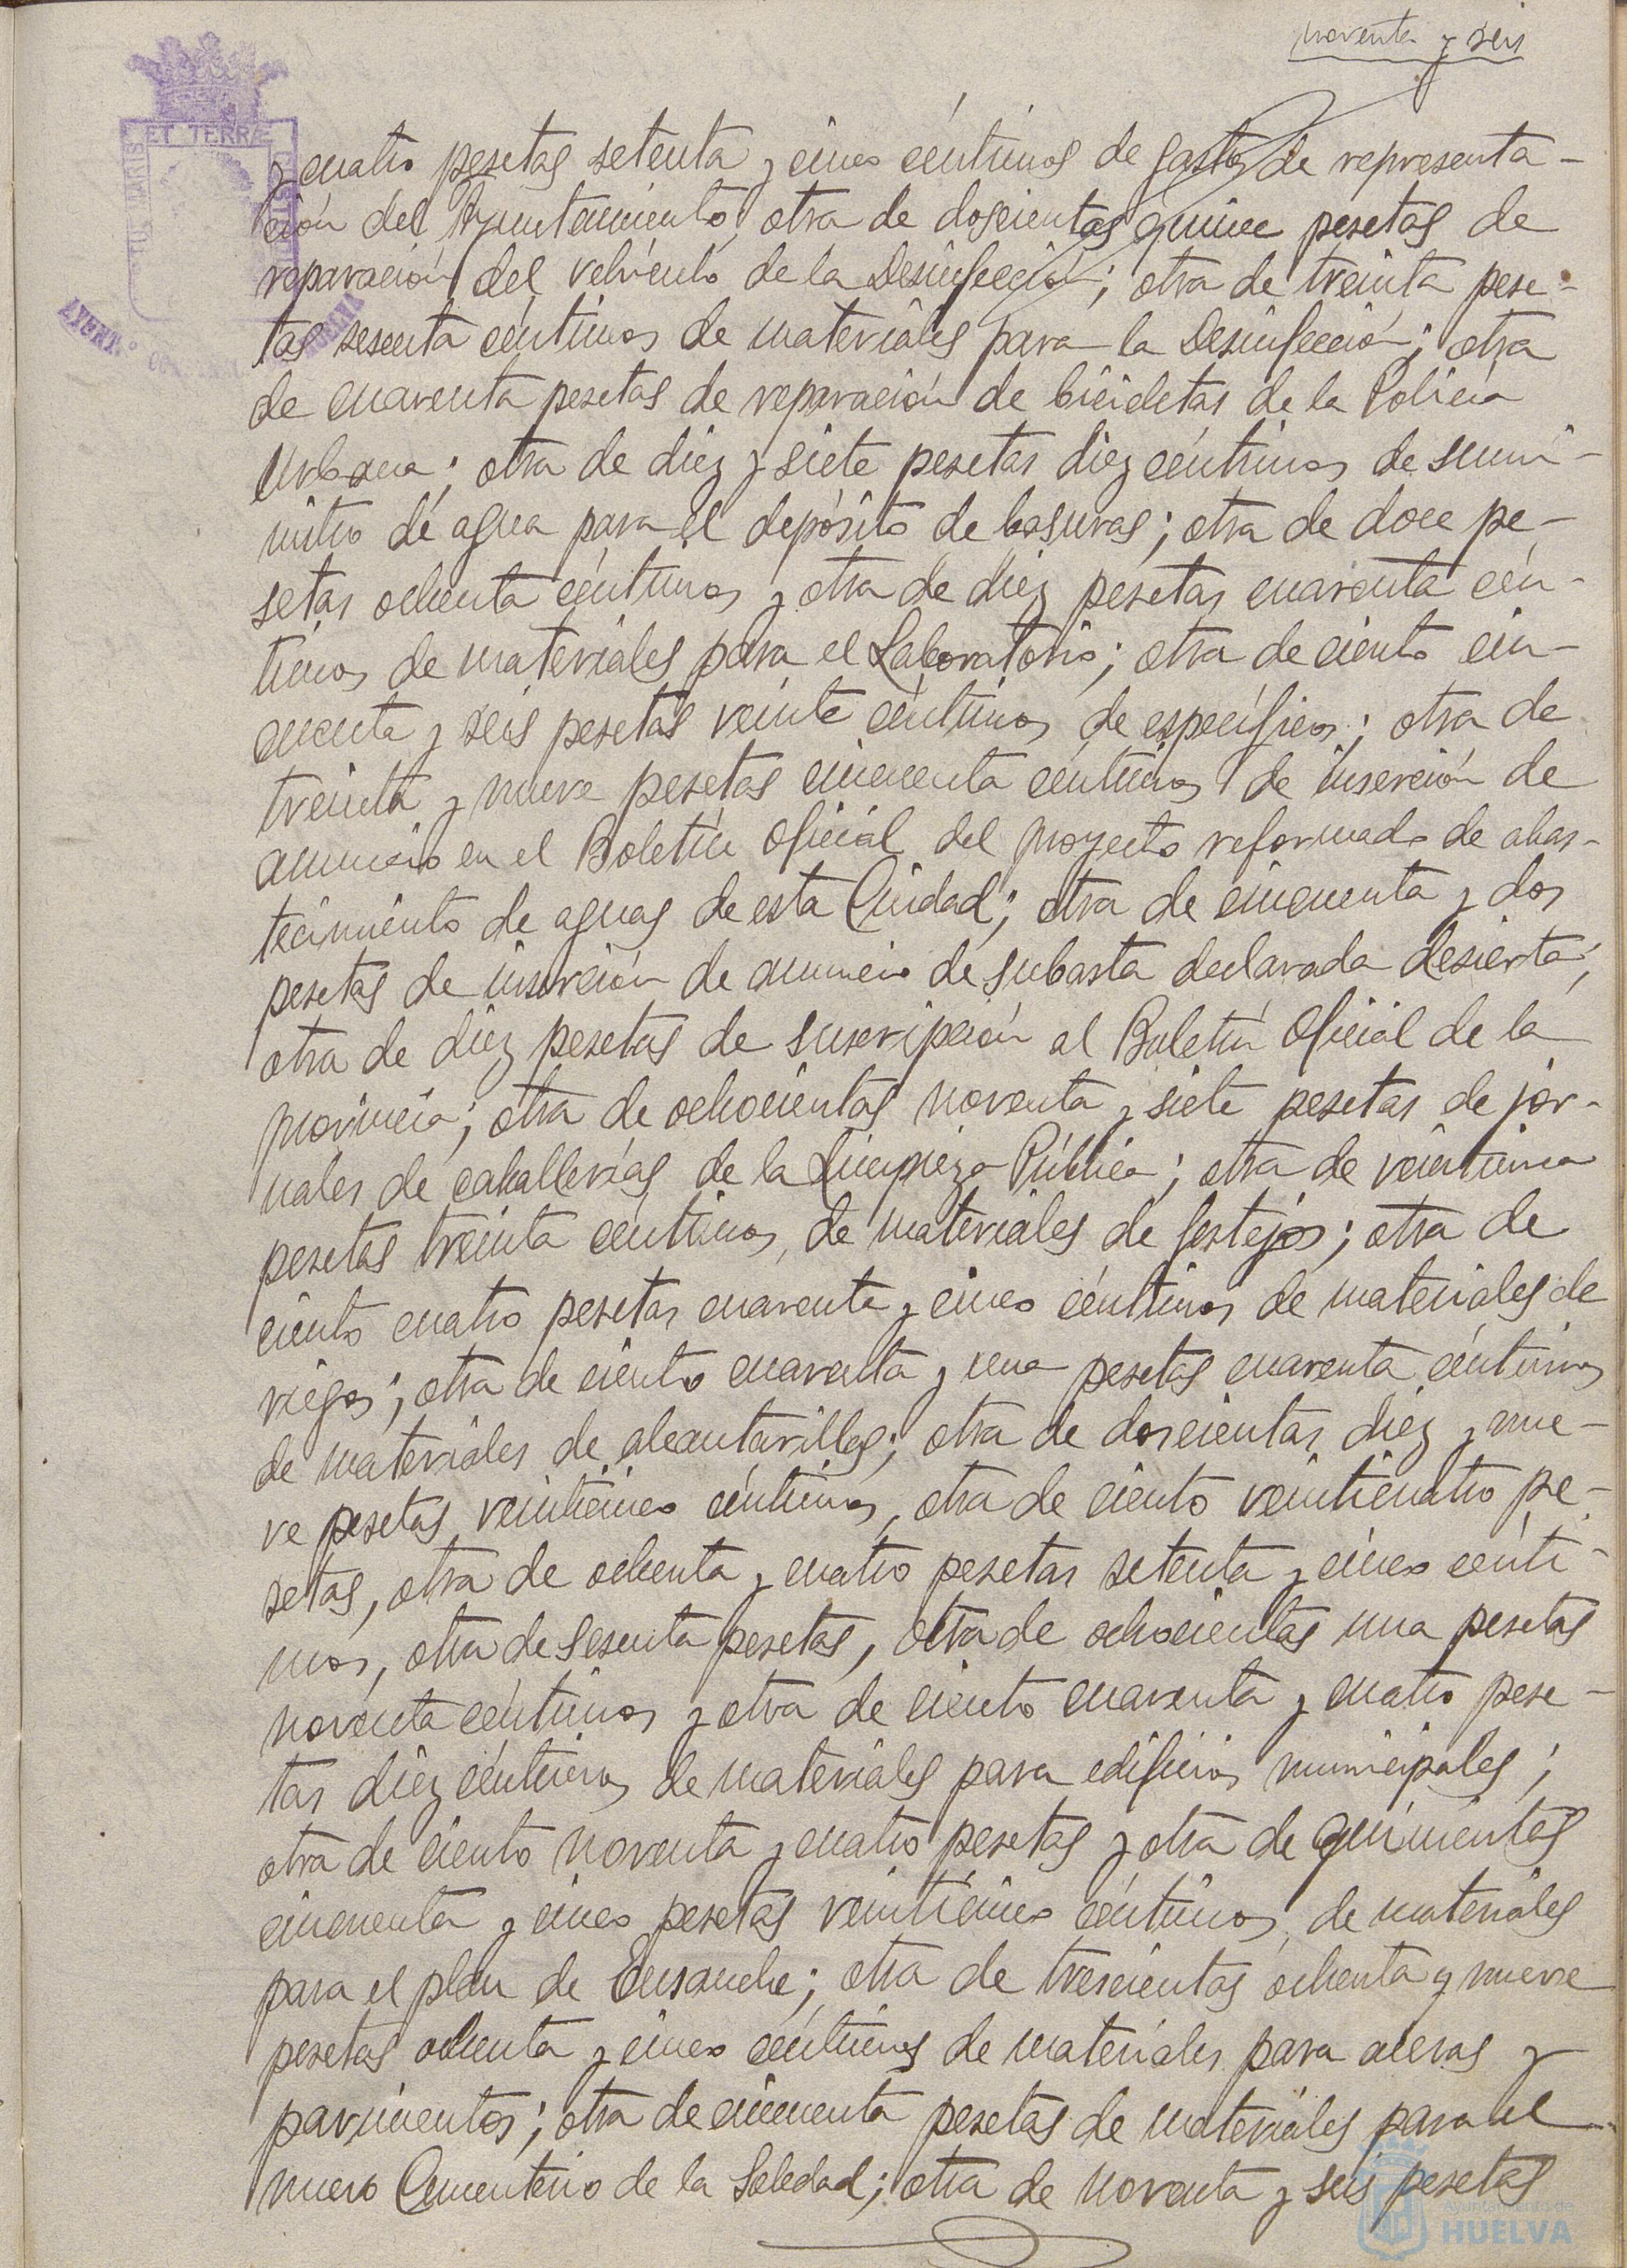 noventa y seis
ET TERRÆ
y cuatro pesetas setenta y cinco céntimos de gastos de representa-
ción del Ayuntamiento, otra de doscientas quince pesetas de
reparación del vehículo de la Desinfección; otra de treinta pese-
tas sesenta céntimos de materiales para la Desinfección; otra
de cuarenta pesetas de reparación de bicicletas de la Policía
Urbana; otra de diez y siete pesetas diez céntimos de sumi-
nistro de agua para el depósito de basuras; otra de doce pe-
setas ochenta céntimos y otra de diez pesetas cuarenta cén-
timos de materiales para el Laboratorio; otra de ciento cin-
cuenta y seis pesetas veinte céntimos de específicos; otra de
treinta y nueve pesetas cincuenta céntimos de inserción de
anuncio en el Boletín Oficial del proyecto reformado de abas-
tecimiento de aguas de esta Ciudad; otra de cincuenta y dos
pesetas de inserción de anuncio de subasta declarada desierta;
otra de diez pesetas de suscripción al Boletín Oficial de la
provincia; otra de ochocientas noventa y siete pesetas de jor-
nales de caballerías de la Limpieza Pública; otra de veintiuna
pesetas treinta céntimos, de materiales de festejos; otra de
ciento cuatro pesetas cuarenta y cinco céntimos de materiales de
riegos; otra de ciento cuarenta y una pesetas cuarenta céntimos
de materiales de alcantarillas; otra de doscientas diez y nue-
ve pesetas veinticinco céntimos, otra de ciento veinticuatro pe-
setas, otra de ochenta y cuatro pesetas setenta y cinco cénti-
mos, otra de sesenta pesetas, otra de ochocientas una pesetas
noventa céntimos y otra de ciento cuarenta y cuatro pese-
tas diez céntimos de materiales para edificios municipales;
otra de ciento noventa y cuatro pesetas y otra de quinientas
cincuenta y cinco pesetas veinticinco céntimos, de materiales
para el plan de Ensanche; otra de trescientas ochenta y nueve
pesetas ochenta y cinco céntimos de materiales para aceras y
pavimentos; otra de cincuenta pesetas de materiales para el
nuevo Cementerio de la Soledad; otra de noventa y seis pesetas
Ayuntamiento de
HUELVA